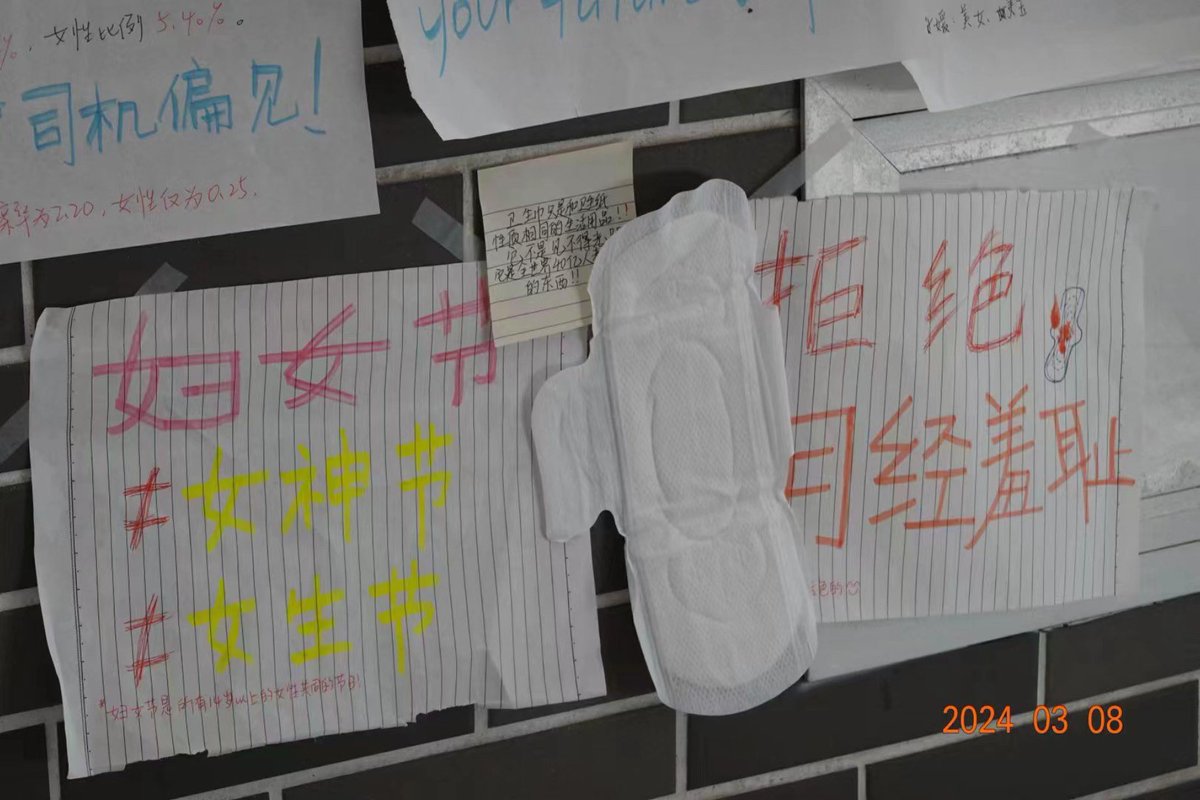 %，女性比例 5.40%。
司机偏见！
率为2.20，女性仅为0.25.
your future
美女、
卫生巾只是和卫生纸
性质相同的生活用品!!
它不是见不得光
它是全世界40亿人
的东西!!
妇女节
≠女神节
≠女生节
*妇女节是所有14岁以上的女性共同的节日!
拒绝
月经羞耻
色的
2024 03 08